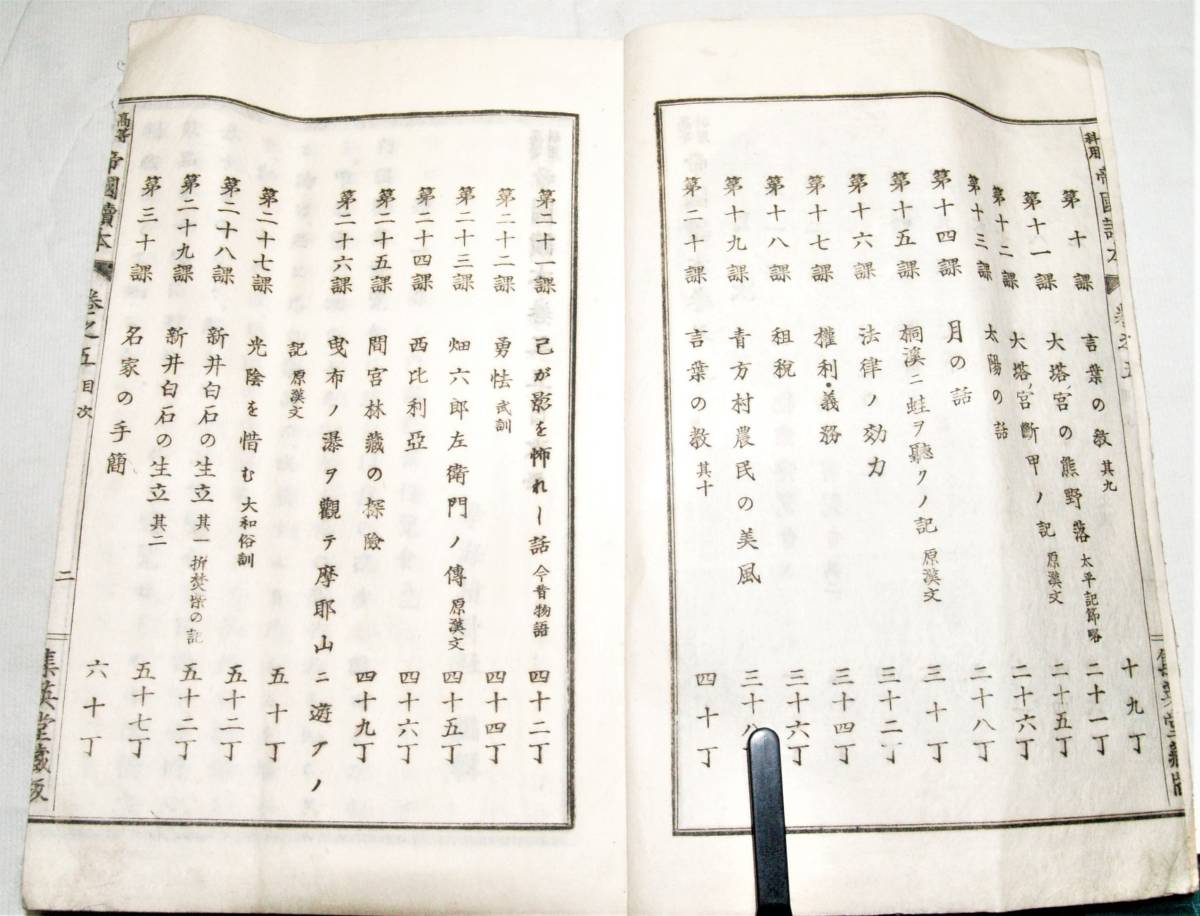 科用 帝國讀本 卷之五
第十課 言葉の教 其九 十九丁
第十一課 大塔ノ宮の熊野落 太平記節略 二十一丁
第十二課 大塔ノ宮斷甲ノ記 原漢文 二十五丁
第十三課 太陽の話 二十六丁
第十四課 月の話 二十八丁
第十五課 桐溪ニ蛙ヲ聽クノ記 原漢文 三十丁
第十六課 法律ノ効力 三十二丁
第十七課 權利・義務 三十四丁
第十八課 租税 三十六丁
第十九課 青方村農民の美風 三十八
第二十課 言葉の教 其十 四十丁
第二十一課 己が影を怖れし話 今昔物語 四十二丁
第二十二課 勇怯 武訓 四十四丁
第二十三課 畑六郎左衛門ノ傳 原漢文 四十五丁
第二十四課 西比利亞 四十六丁
第二十五課 間宮林藏の探險 四十九丁
第二十六課 曳布ノ瀑ヲ觀テ摩耶山ニ遊ブノ
記 原漢文 五十丁
第二十七課 光陰を惜む 大和俗訓 五十二丁
第二十八課 新井白石の生立 其一 折焚柴の記 五十二丁
第二十九課 新井白石の生立 其二 五十七丁
第三十課 名家の手簡 六十丁
高等 帝國讀本 卷之五 目次 二 集英堂藏版